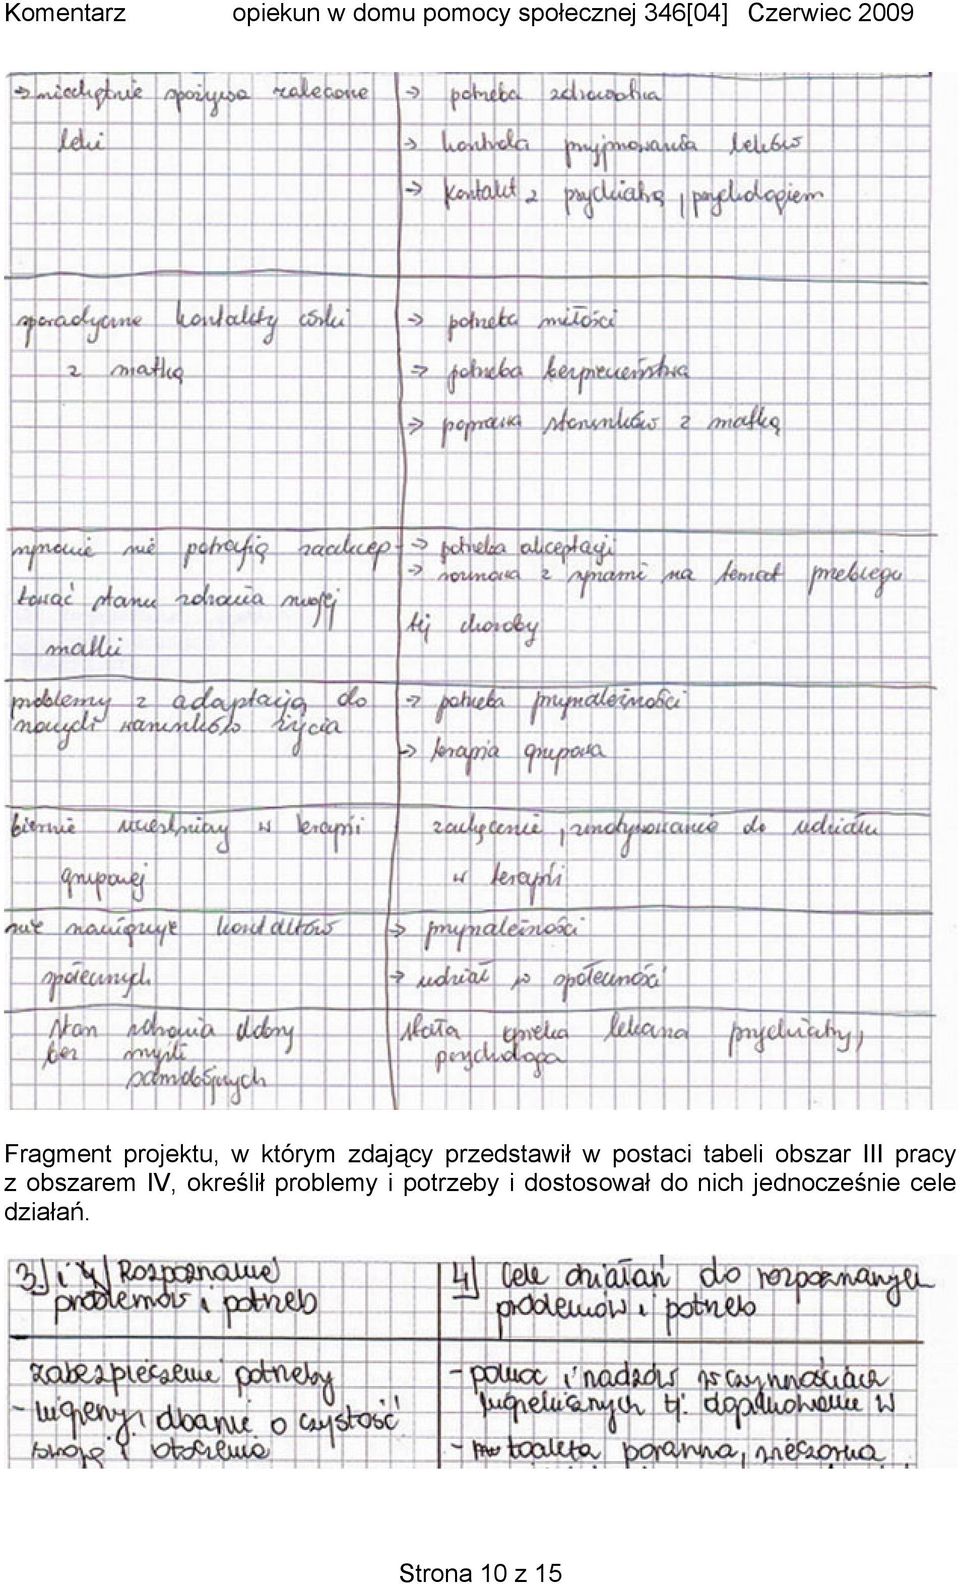 Komentarz opiekun w domu pomocy społecznej 346[04] Czerwiec 2009
→ niechętnie spożywa zalecone → potrzeba zdrowotna
leki → kontrola przyjmowania leków
→ kontakt z psychiatrą, psychologiem
sporadyczne kontakty córki → potrzeba miłości
z matką → potrzeba bezpieczeństwa
→ poprawa stosunków z matką
synowie nie potrafią zaakcep- → potrzeba akceptacji
→ rozmowa z synami na temat przebiegu
tować stanu zdrowia swojej
tej choroby
matki
problemy z adaptacją do → potrzeba przynależności
nowych warunków życia
→ terapia grupowa
biernie uczestniczy w terapii zachęcenie, zmotywowanie do udziału
grupowej w terapii
nie nawiązuje kontaktów → przynależności
społecznych → udział w społeczności
stan zdrowia dobry stała opieka lekarza psychiatry,
bez myśli psychologa
samobójczych
Fragment projektu, w którym zdający przedstawił w postaci tabeli obszar III pracy
z obszarem IV, określił problemy i potrzeby i dostosował do nich jednocześnie cele
działań.
3.) i 4) Rozpoznanie 4) Cele działań do rozpoznanych
problemów i potrzeb problemów i potrzeb
zabezpieczenie potrzeby - pomoc i nadzór w czynnościach
- higieny, dbanie o czystość higienicznych tj. dopilnowanie w
swoją i otoczenia - toaleta poranna, wieczorna
Strona 10 z 15